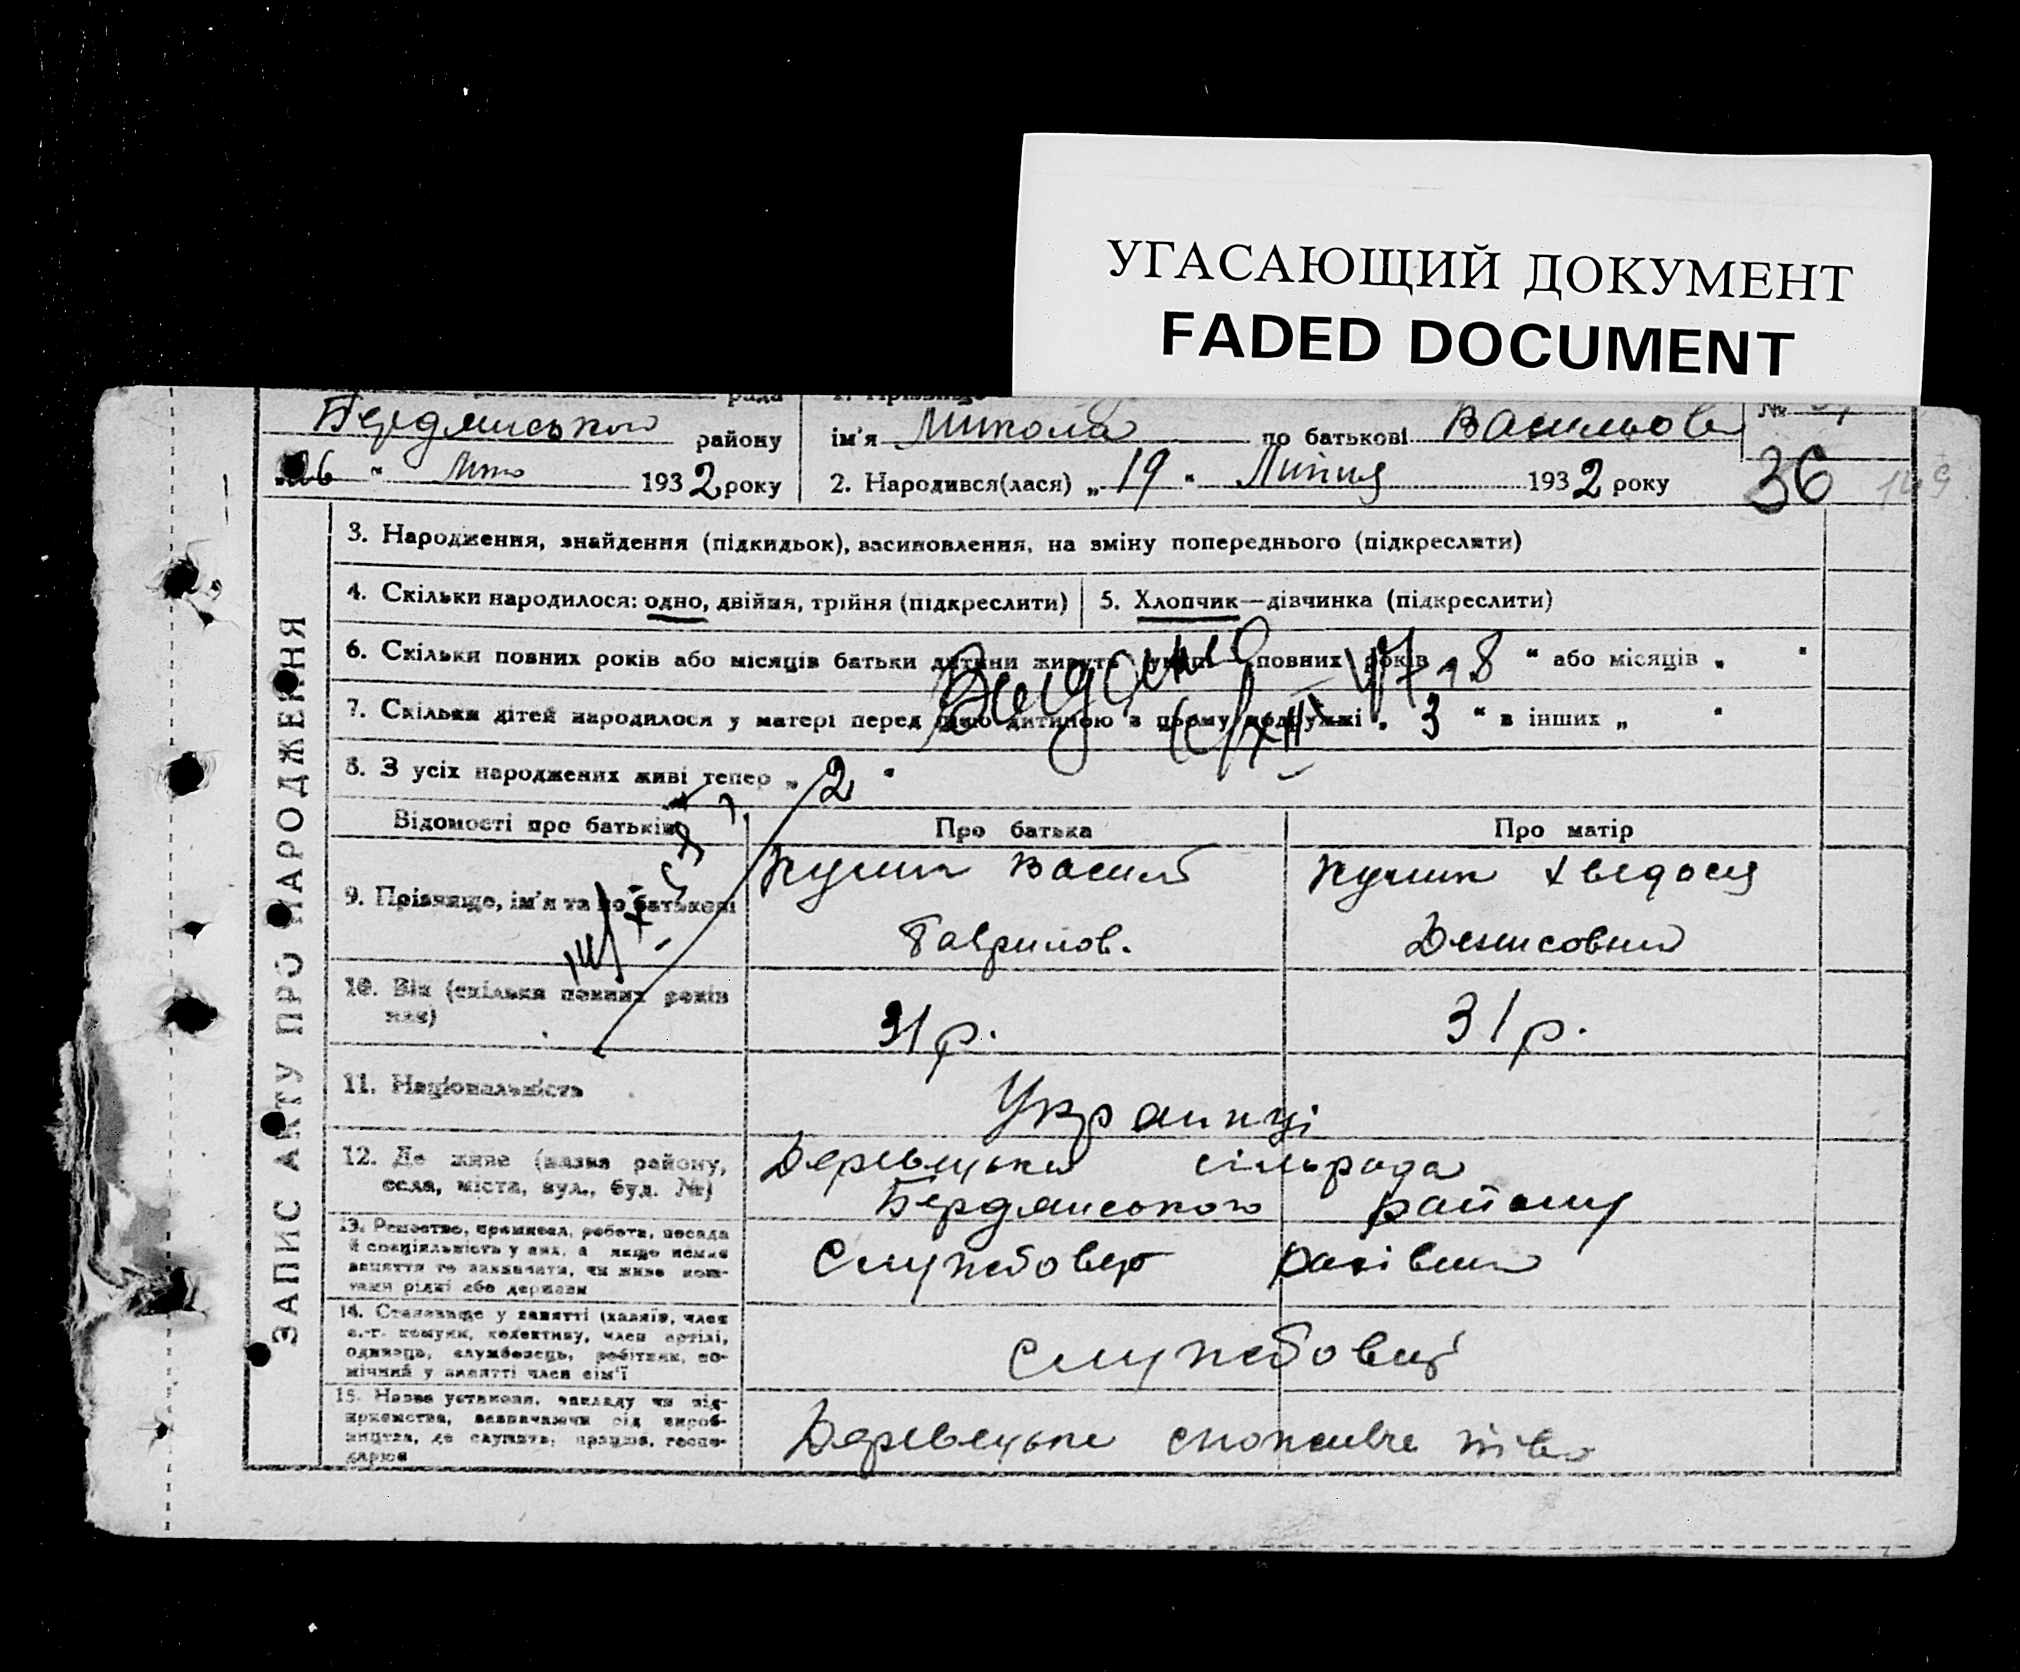 УГАСАЮЩИЙ ДОКУМЕНТ
FADED DOCUMENT
рада
1. Прізвище
№
Бердянського району
ім'я Микола по батькові Васильов
26 " 1932 року
2. Народився(лася) „ 19 " Липня 1932 року
36
149
ЗАПИС АКТУ ПРО НАРОДЖЕННЯ
3. Народження, знайдення (підкидьок), васиновлення, на зміну попереднього (підкреслити)
4. Скільки народилося: одно, двійня, трійня (підкреслити)
5. Хлопчик—дівчинка (підкреслити)
6. Скільки повних років або місяців батьки дитини живуть повних років „ 8 " або місяців „ "
7. Скільки дітей народилося у матері перед цією дитиною з цьому подружжі „ 3 " в інших „ "
8. З усіх народжених живі тепер „ 2 "
Відомості про батьків
Про батька
Про матір
9. Прізвище, ім'я та по батькові
Кулик Василь
Гаврилов.
Кулик Хведося
Денисовна
10. Вік (скільки повних років має)
31 р.
31 р.
11. Національність
Украинці
12. Де живе (назва району, села, міста, вул., буд. №)
сільрада
Бердянського району
13. Ремество, промисел, робота, посада
й спеціяльність у них, а якщо немає
заняття то зазначити, чи живе кош-
тами рідні або держави
Службовець
14. Становище у занятті (хазяїн, член
с.-г. комуни, колективу, член артілі,
одинець, службовець, робітник, по-
мічний у занятті член сім'ї
Службовці
15. Назва установи, закладу чи під-
приємства, зазначаючи рід вироб-
ництва, де служить, працює, госпо-
дарює